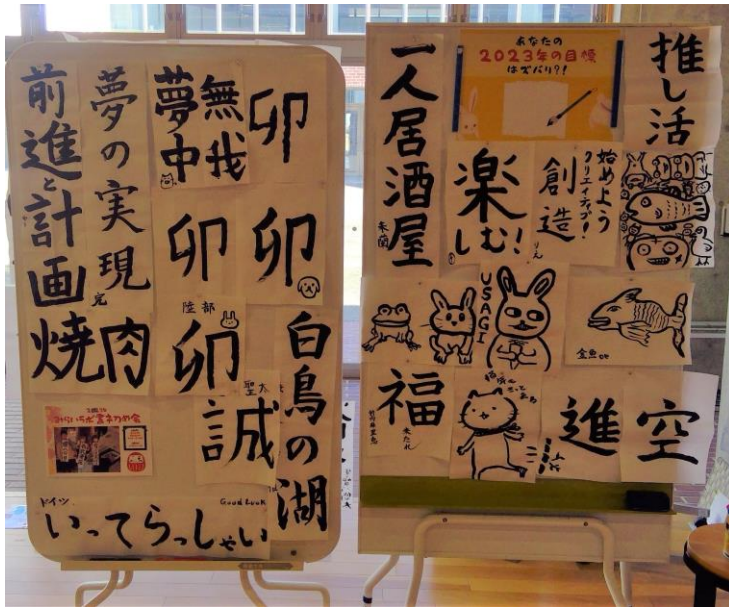 前進と計画
夢の実現
無我
夢中
卯
卯
卯
卯
陸部
焼肉
誠
白鳥の湖
ドイツ
Good Luck
いってらっしゃい
一人居酒屋
あなたの
2023年の目標
はズバリ?!
推し活
楽
しむ!
りえ
始めよう
クリエイティブ!
創造
USAGI
金魚
福
来たれ
進
空